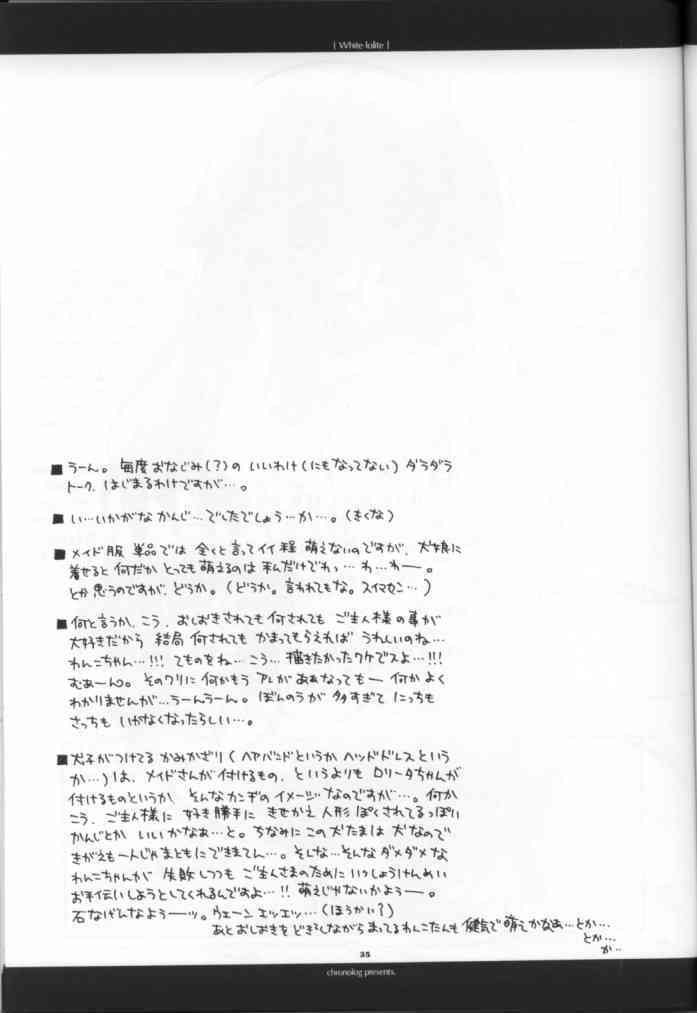 [ White lolite ]
■ うーん。毎度おなじみ(?)の いいわけ(にもなってない) ダラダラ
トーク、はじまるわけですが…。
■ い…いかがな かんじ…でしたでしょう…か…。(きくな)
■ メイド服 単品では 全くと言ってイイ程 萌えないのですが、犬娘に
着せると 何だか とっても萌えるのは 私だけでわっ…わ…わーー。
とか思うのですが、どうか。(どうか。言われてもな。スイマセン…)
■ 何と言うか、こう、おしおきされても何されても ご主人様の事が
大好きだから 結局 何されても かまってもらえれば うれしいのね…
わんこちゃん…!!! てものをね…こう…描きたかったワケでスよ…!!!
むあーん。そのワリに何かもう アレが ああなってもー 何か よく
わかりませんが…うーんうーん。ぼんのうが 多すぎて にっちも
さっちも いかなくなったらしい…。
■ 犬子がつけてる かみかざり(ヘアバンドというか ヘッドドレスという
か…)は、メイドさんが付けるもの、というよりも ロリータちゃんが
付けるものというか、そんなカンヂの イメージなのですが…。何か
こう、ご主人様に 好き勝手に きせかえ 人形 ぽくされてるっぽい
かんじとか いいかなぁ…と。ちなみに この犬たまは 犬なので
きがえも一人じゃまともにできまてん…。そんな…そんな ダメダメな
わんこちゃんが 失敗しつつも ご主人さまのために いっしょうけんめい
お手伝いしようとしてくれるんですよ…!! 萌えじゃないかようー。
石なげんなようーッ。ウェーン エッエッ…(ほうかい?)
あとおしおきを どきどきしながら まってるわんこたんも 健気で 萌えかなぁ…とか…
とか…
か…
35
chronolog presents.